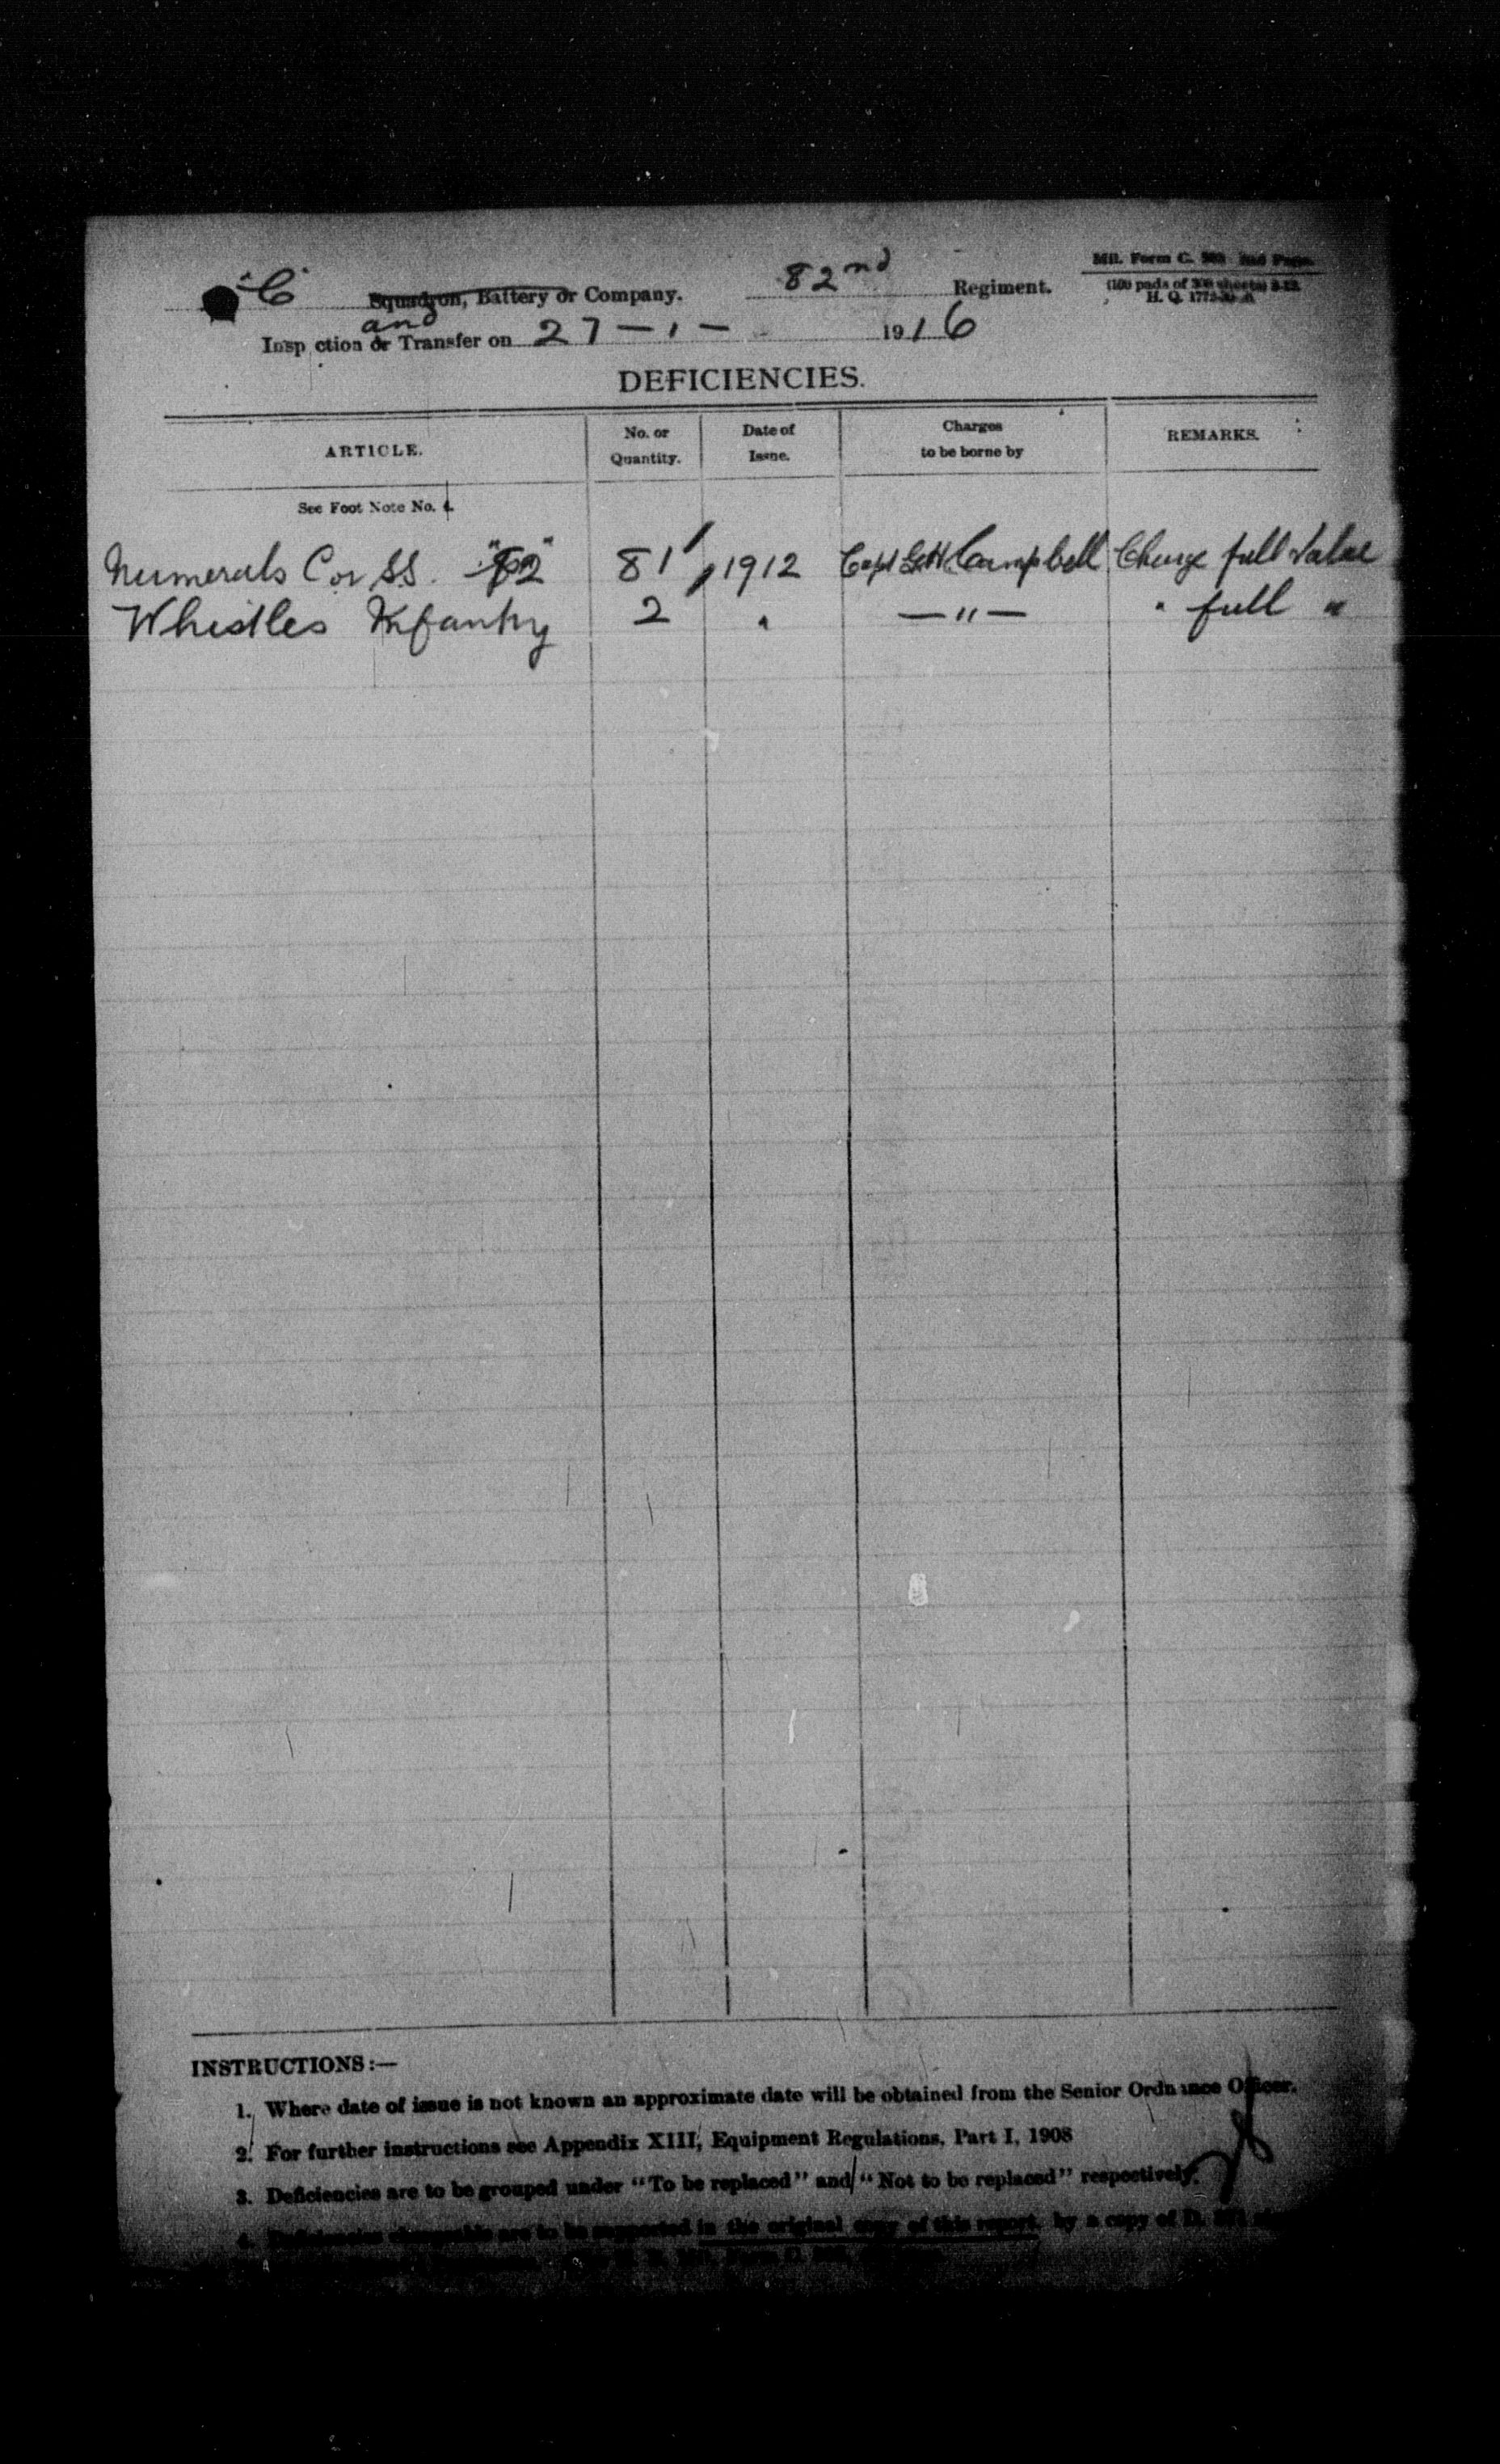 "C" Squadron, Battery or Company. 82nd Regiment.
Mil. Form C. 2nd Page.
(100 pads of sheets)
H. Q. 1772
and
Insp ction or Transfer on 27 - 1 - 1916
DEFICIENCIES.
ARTICLE. No. or Quantity. Date of Issue. Charges to be borne by REMARKS.
See Foot Note No. 4.
Numerals C or SS. "82" 81 1912 Capt G.H. Campbell Charge full Value
Whistles Infantry 2 " —"— " full "
INSTRUCTIONS:—
1. Where date of issue is not known an approximate date will be obtained from the Senior Ordnance Officer.
2. For further instructions see Appendix XIII, Equipment Regulations, Part I, 1908
3. Deficiencies are to be grouped under "To be replaced" and "Not to be replaced" respectively.
4. Deficiencies chargeable are to be supported in the original copy of this report, by a copy of D.